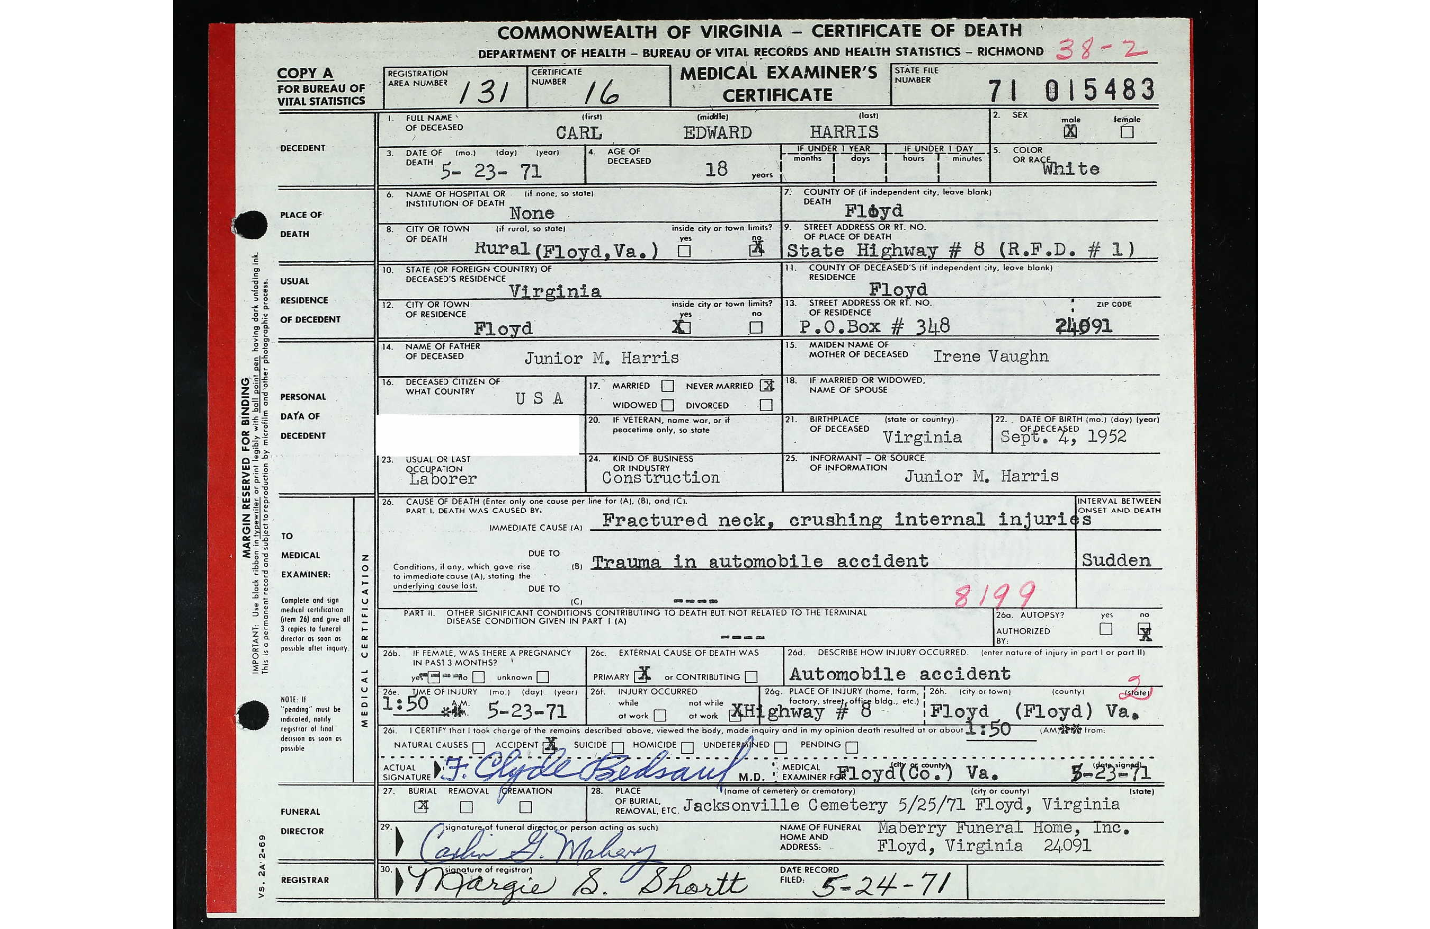 COMMONWEALTH OF VIRGINIA – CERTIFICATE OF DEATH
DEPARTMENT OF HEALTH – BUREAU OF VITAL RECORDS AND HEALTH STATISTICS – RICHMOND 38-2
COPY A
FOR BUREAU OF
VITAL STATISTICS
REGISTRATION
AREA NUMBER 131
CERTIFICATE
NUMBER 16
MEDICAL EXAMINER'S
CERTIFICATE
STATE FILE
NUMBER 71 015483
DECEDENT
1. FULL NAME (first) (middle) (last)
OF DECEASED CARL EDWARD HARRIS
2. SEX male female
X
3. DATE OF (mo.) (day) (year)
DEATH 5- 23- 71
4. AGE OF
DECEASED 18 years
IF UNDER 1 YEAR IF UNDER 1 DAY
months days hours minutes
5. COLOR
OR RACE White
PLACE OF
DEATH
6. NAME OF HOSPITAL OR (if none, so state)
INSTITUTION OF DEATH None
7. COUNTY OF (if independent city, leave blank)
DEATH Floyd
8. CITY OR TOWN (if rural, so state) inside city or town limits?
OF DEATH yes no
Rural (Floyd,Va.) X
9. STREET ADDRESS OR RT. NO.
OF PLACE OF DEATH
State Highway # 8 (R.F.D. # 1)
USUAL
RESIDENCE
OF DECEDENT
10. STATE (OR FOREIGN COUNTRY) OF
DECEASED'S RESIDENCE Virginia
11. COUNTY OF DECEASED'S (if independent city, leave blank)
RESIDENCE Floyd
12. CITY OR TOWN inside city or town limits?
OF RESIDENCE yes no
Floyd X
13. STREET ADDRESS OR RT. NO. ZIP CODE
OF RESIDENCE
P.O.Box # 348 24091
PERSONAL
DATA OF
DECEDENT
14. NAME OF FATHER
OF DECEASED Junior M. Harris
15. MAIDEN NAME OF
MOTHER OF DECEASED Irene Vaughn
16. DECEASED CITIZEN OF
WHAT COUNTRY U S A
17. MARRIED NEVER MARRIED X
WIDOWED DIVORCED
18. IF MARRIED OR WIDOWED,
NAME OF SPOUSE
20. IF VETERAN, name war, or if
peacetime only, so state
21. BIRTHPLACE (state or country)
OF DECEASED Virginia
22. DATE OF BIRTH (mo.) (day) (year)
OF DECEASED
Sept. 4, 1952
23. USUAL OR LAST
OCCUPATION
Laborer
24. KIND OF BUSINESS
OR INDUSTRY
Construction
25. INFORMANT – OR SOURCE
OF INFORMATION Junior M. Harris
TO
MEDICAL
EXAMINER:
Complete and sign
medical certification
(item 26) and give all
3 copies to funeral
director as soon as
possible after inquiry.
NOTE: If
"pending" must be
indicated, notify
registrar of final
decision as soon as
possible
MEDICAL CERTIFICATION
26. CAUSE OF DEATH (Enter only one cause per line for (A), (B), and (C).
PART I. DEATH WAS CAUSED BY.
INTERVAL BETWEEN
ONSET AND DEATH
IMMEDIATE CAUSE (A) Fractured neck, crushing internal injuries
DUE TO
Conditions, if any, which gave rise
to immediate cause (A), stating the
underlying cause last.
(B) Trauma in automobile accident Sudden
DUE TO
(C) ---- 8199
PART II. OTHER SIGNIFICANT CONDITIONS CONTRIBUTING TO DEATH BUT NOT RELATED TO THE TERMINAL
DISEASE CONDITION GIVEN IN PART I (A)
----
26a. AUTOPSY? yes no
AUTHORIZED
BY: X
26b. IF FEMALE, WAS THERE A PREGNANCY
IN PAST 3 MONTHS?
yes no unknown
26c. EXTERNAL CAUSE OF DEATH WAS
PRIMARY X or CONTRIBUTING
26d. DESCRIBE HOW INJURY OCCURRED. (enter nature of injury in part I or part II)
Automobile accident
26e. TIME OF INJURY (mo.) (day) (year)
1:50 A.M. 5-23-71
26f. INJURY OCCURRED
while not while
at work at work X
26g. PLACE OF INJURY (home, farm,
factory, street, office bldg., etc.)
Highway # 8
26h. (city or town) (county) (state)
Floyd (Floyd) Va. 2
26i. I CERTIFY that I took charge of the remains described above, viewed the body, made inquiry and in my opinion death resulted at or about 1:50 (AM) from:
NATURAL CAUSES ACCIDENT X SUICIDE HOMICIDE UNDETERMINED PENDING
ACTUAL
SIGNATURE F. Clyde Bedsaul M.D.
MEDICAL (city or county) (date signed)
EXAMINER FOR Floyd(Co.) Va. 5-23-71
FUNERAL
DIRECTOR
27. BURIAL REMOVAL CREMATION
X
28. PLACE (name of cemetery or crematory) (city or county) (state)
OF BURIAL,
REMOVAL, ETC. Jacksonville Cemetery 5/25/71 Floyd, Virginia
29. (signature of funeral director or person acting as such)
G.
NAME OF FUNERAL
HOME AND
ADDRESS:
Maberry Funeral Home, Inc.
Floyd, Virginia 24091
REGISTRAR
30. (signature of registrar)
Margie S. Shortt
DATE RECORD
FILED: 5-24-71
MARGIN RESERVED FOR BINDING
IMPORTANT: Use black ribbon in typewriter or print legibly with ball point pen having dark unfading ink.
This is a permanent record and subject to reproduction by microfilm and other photographic process.
VS. 2A 2-69